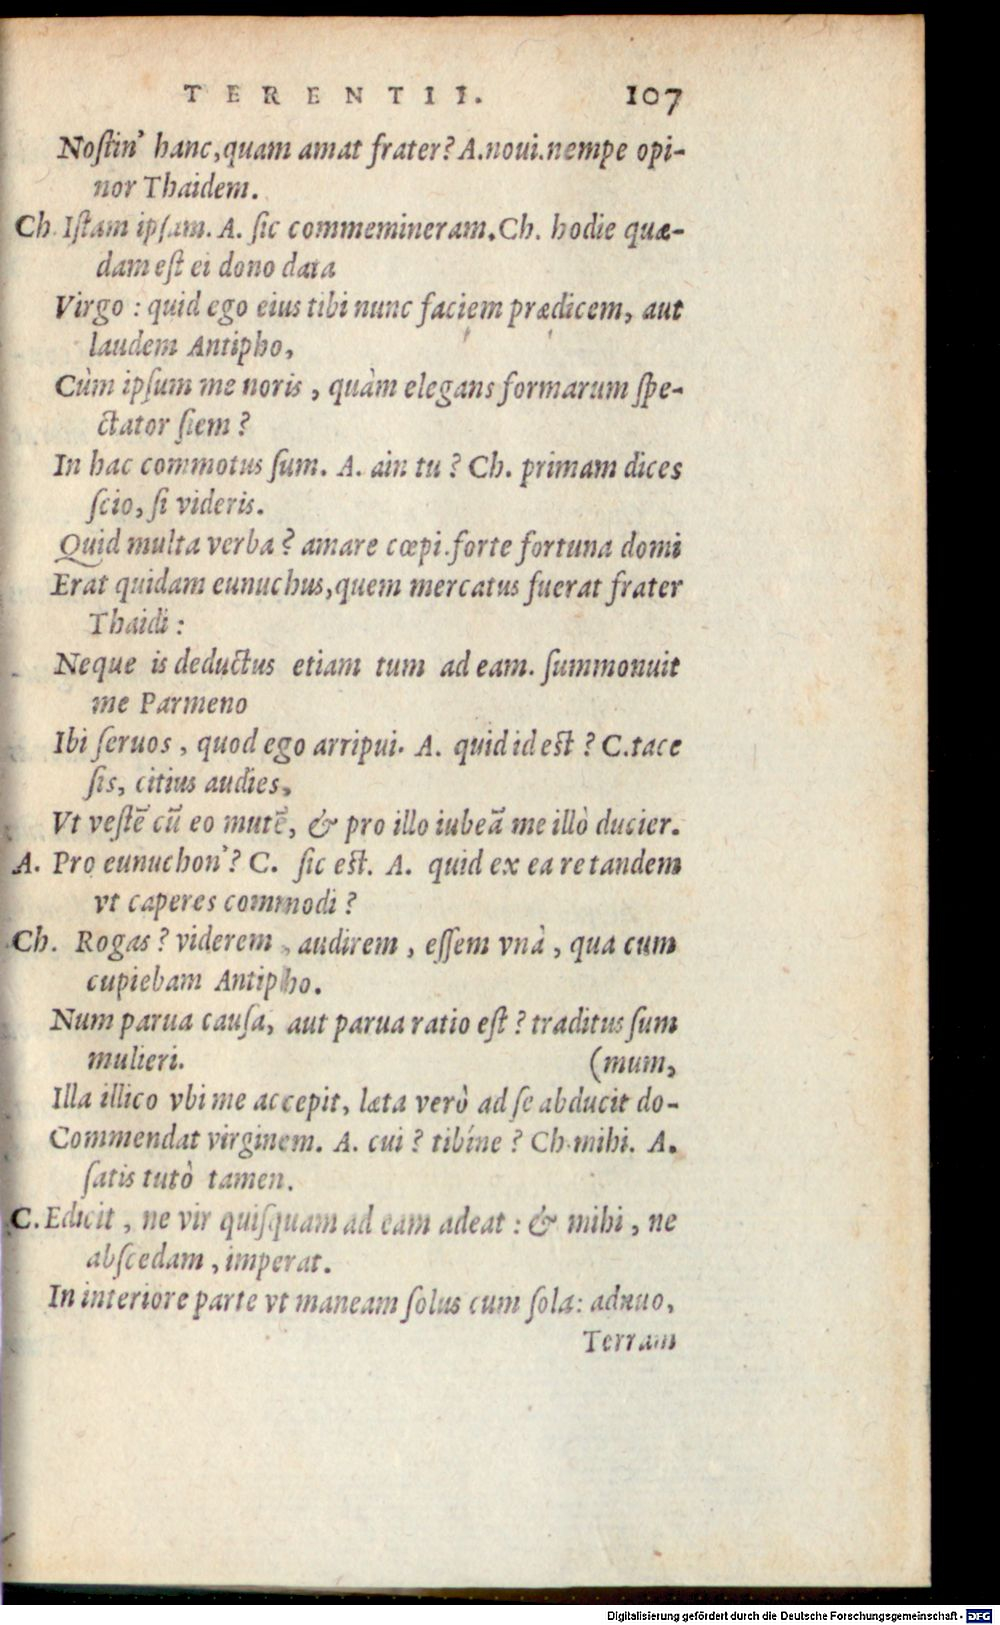 TERENTII. 107
Noſtin' hanc, quam amat frater? A. noui. nempe opi-
nor Thaidem.
Ch. Iſtam ipſam. A. ſic commemineram. Ch. hodie quæ-
dam eſt ei dono data
Virgo : quid ego eius tibi nunc faciem prædicem, aut
laudem Antipho,
Cùm ipſum me noris, quàm elegans formarum ſpe-
ctator ſiem?
In hac commotus ſum. A. ain tu? Ch. primam dices
ſcio, ſi videris.
Quid multa verba? amare cœpi. forte fortuna domi
Erat quidam eunuchus, quem mercatus fuerat frater
Thaidi :
Neque is deductus etiam tum ad eam. ſummonuit
me Parmeno
Ibi ſeruos, quod ego arripui. A. quid id eſt? C. tace
ſis, citius audies,
Vt veſtē cū eo mutē, & pro illo iubeā me illò ducier.
A. Pro eunuchon'? C. ſic eſt. A. quid ex ea re tandem
vt caperes commodi?
Ch. Rogas? viderem, audirem, eſſem vnà, qua cum
cupiebam Antipho.
Num parua cauſa, aut parua ratio eſt? traditus ſum
mulieri. (mum,
Illa illico vbi me accepit, læta verò ad ſe abducit do-
Commendat virginem. A. cui? tibíne? Ch. mihi. A.
ſatis tutò tamen.
C. Edicit, ne vir quiſquam ad eam adeat : & mihi, ne
abſcedam, imperat.
In interiore parte vt maneam ſolus cum ſola: adnuo,
Terram
Digitalisierung gefördert durch die Deutsche Forschungsgemeinschaft - DFG